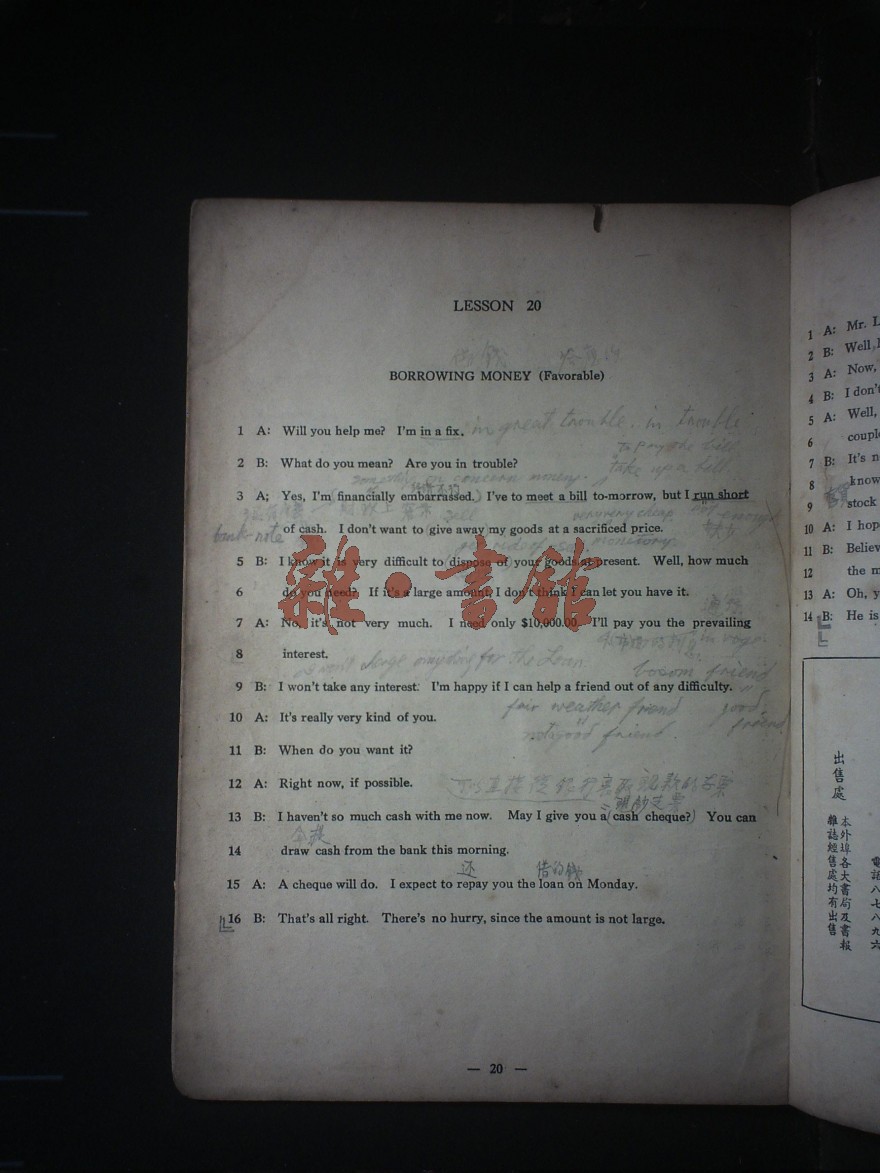 LESSON 20
BORROWING MONEY (Favorable)
1 A: Will you help me? I'm in a fix.
in great trouble. in trouble
to pay the bill
2 B: What do you mean? Are you in trouble?
take up a bill
3 A; Yes, I'm financially embarrassed. I've to meet a bill to-morrow, but I run short
bank note
of cash. I don't want to give away my goods at a sacrificed price.
5 B: I know it is very difficult to dispose of your goods at present. Well, how much
6 do you need? If it's a large amount, I don't think I can let you have it.
7 A: No, it's not very much. I need only $10,000.00. I'll pay you the prevailing
8 interest.
bosom friend
9 B: I won't take any interest. I'm happy if I can help a friend out of any difficulty.
fair weather friend good friend
10 A: It's really very kind of you.
not good friend.
11 B: When do you want it?
12 A: Right now, if possible.
現鈔支票
13 B: I haven't so much cash with me now. May I give you a (cash cheque?) You can
14 draw cash from the bank this morning.
还 借的錢
15 A: A cheque will do. I expect to repay you the loan on Monday.
16 B: That's all right. There's no hurry, since the amount is not large.
— 20 —
雜·書館
1 A: Mr. L
2 B: Well,
3 A: Now,
4 B: I don't
5 A: Well,
6 coupl
7 B: It's n
8 know
9 stock
10 A: I hop
11 B: Believ
12 the m
13 A: Oh, y
14 B: He is
出售處
本外埠各大書局及書報
雜誌經售處均有出售
電話八七八九六